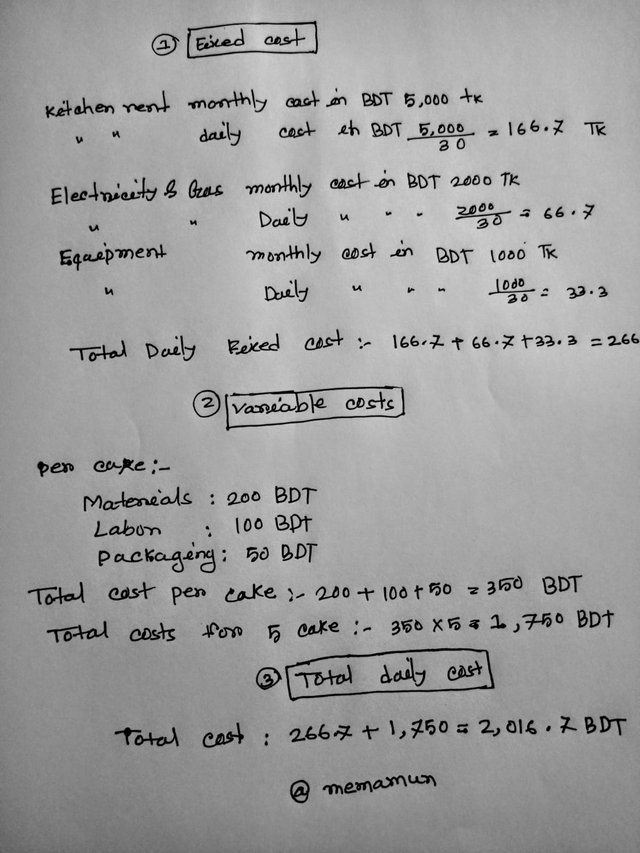 1 Fixed cost
Kitchen rent monthly cost in BDT 5,000 tk
" " daily cost in BDT 5,000/30 = 166.7 TK
Electricity & Gas monthly cost in BDT 2000 TK
" " Daily " " " 2000/30 = 66.7
Equipment monthly cost in BDT 1000 TK
" Daily " " " 1000/30 = 33.3
Total Daily Fixed cost :- 166.7 + 66.7 + 33.3 = 266
2 Variable costs
per cake :-
Materials : 200 BDT
Labor : 100 BDT
Packaging : 50 BDT
Total cost per cake :- 200 + 100 + 50 = 350 BDT
Total costs for 5 cake :- 350 x 5 = 1,750 BDT
3 Total daily cost
Total cost : 266.7 + 1,750 = 2,016.7 BDT
@ memamun